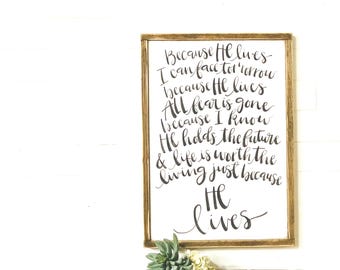 Because He lives
I can face tomorrow
because He lives
All fear is gone
because I know
He holds the future
& life is worth the
living just because
He
lives